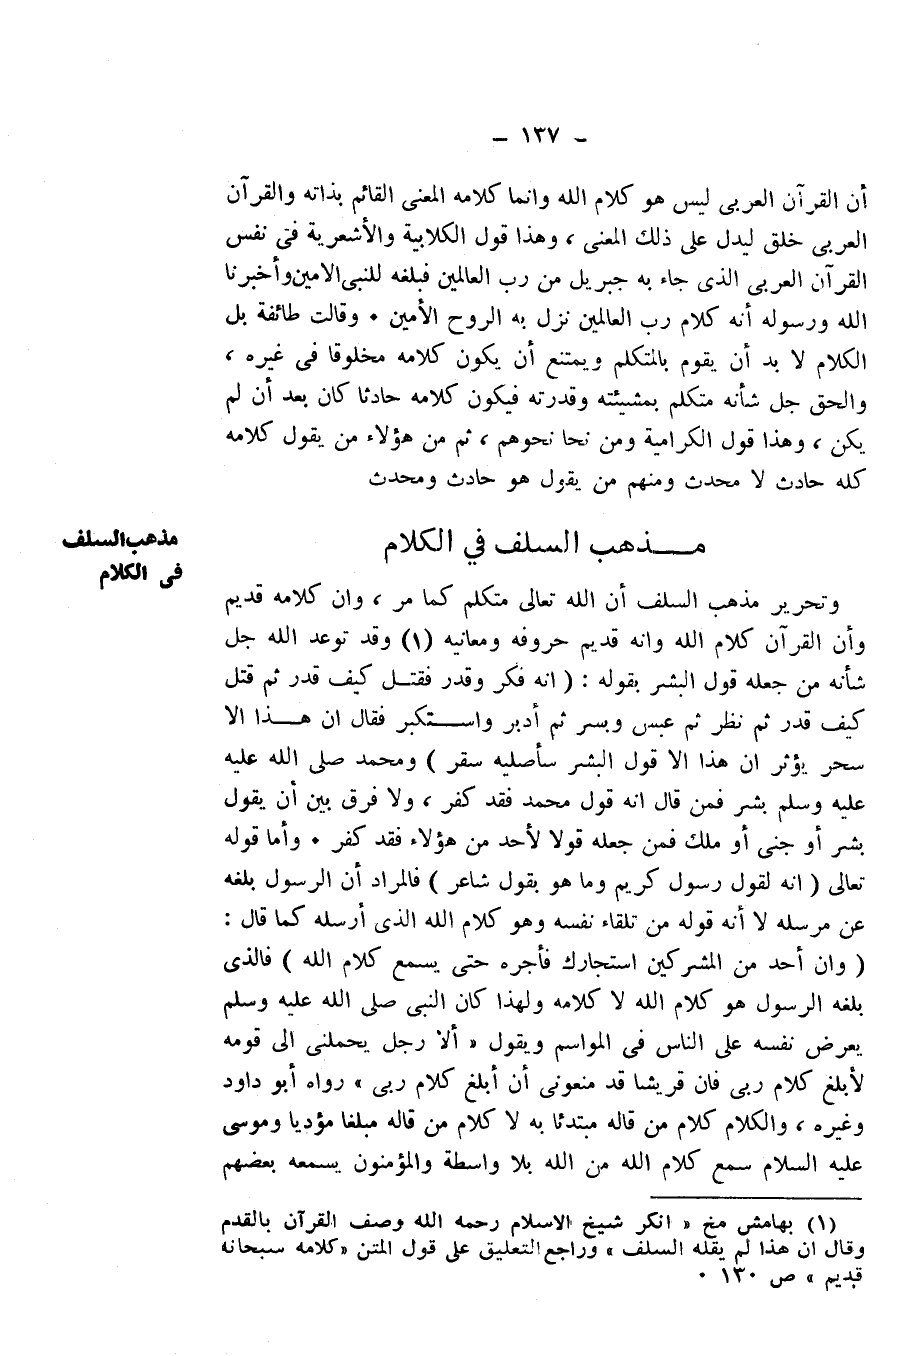 – ١٣٧ –
أن القرآن العربى ليس هو كلام الله وانما كلامه المعنى القائم بذاته والقرآن
العربى خلق ليدل على ذلك المعنى ، وهذا قول الكلابية والأشعرية فى نفس
القرآن العربى الذى جاء به جبريل من رب العالمين فبلغه للنبى الامين وأخبرنا
الله ورسوله أنه كلام رب العالمين نزل به الروح الأمين . وقالت طائفة بل
الكلام لا بد أن يقوم بالمتكلم ويمتنع أن يكون كلامه مخلوقا فى غيره ،
والحق جل شأنه متكلم بمشيئته وقدرته فيكون كلامه حادثا كان بعد أن لم
يكن ، وهذا قول الكرامية ومن نحا نحوهم ، ثم من هؤلاء من يقول كلامه
كله حادث لا محدث ومنهم من يقول هو حادث ومحدث
مذهب السلف في الكلام
مذهب السلف
فى الكلام
وتحرير مذهب السلف أن الله تعالى متكلم كما مر ، وان كلامه قديم
وأن القرآن كلام الله وانه قديم حروفه ومعانيه (١) وقد توعد الله جل
شأنه من جعله قول البشر بقوله : ( انه فكر وقدر فقتل كيف قدر ثم قتل
كيف قدر ثم نظر ثم عبس وبسر ثم أدبر واستكبر فقال ان هذا الا
سحر يؤثر ان هذا الا قول البشر سأصليه سقر ) ومحمد صلى الله عليه
عليه وسلم بشر فمن قال انه قول محمد فقد كفر ، ولا فرق بين أن يقول
بشر أو جنى أو ملك فمن جعله قولا لأحد من هؤلاء فقد كفر . وأما قوله
تعالى ( انه لقول رسول كريم وما هو بقول شاعر ) فالمراد أن الرسول بلغه
عن مرسله لا أنه قوله من تلقاء نفسه وهو كلام الله الذى أرسله كما قال :
( وان أحد من المشركين استجارك فأجره حتى يسمع كلام الله ) فالذى
بلغه الرسول هو كلام الله لا كلامه ولهذا كان النبى صلى الله عليه وسلم
يعرض نفسه على الناس فى المواسم ويقول « ألا رجل يحملنى الى قومه
لأبلغ كلام ربى فان قريشا قد منعونى أن أبلغ كلام ربى » رواه أبو داود
وغيره ، والكلام كلام من قاله مبتدئا به لا كلام من قاله مبلغا مؤديا وموسى
عليه السلام سمع كلام الله من الله بلا واسطة والمؤمنون يسمعه بعضهم
(١) بهامش مخ « انكر شيخ الاسلام رحمه الله وصف القرآن بالقدم
وقال ان هذا لم يقله السلف » وراجع التعليق على قول المتن «كلامه سبحانه
قديم » ص ١٣٠ .